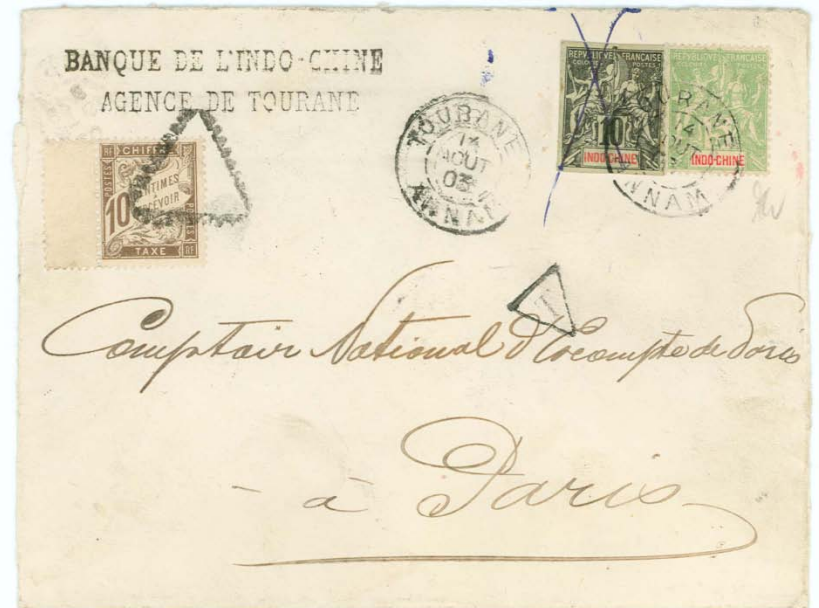 BANQUE DE L'INDO-CHINE
AGENCE DE TOURANE
CHIFFRE
POSTES
10
CENTIMES
PERCEVOIR
TAXE
RF
TOURANE
14
AOUT
03
ANNAM
REPUBLIQUE FRANCAISE
COLONIES
POSTES
10
INDO-CHINE
REPUBLIQUE FRANCAISE
COLONIES
POSTES
INDO-CHINE
TOURANE
14
AOUT
ANNAM
T
Comptoir National d'Escompte de Paris
- à Paris